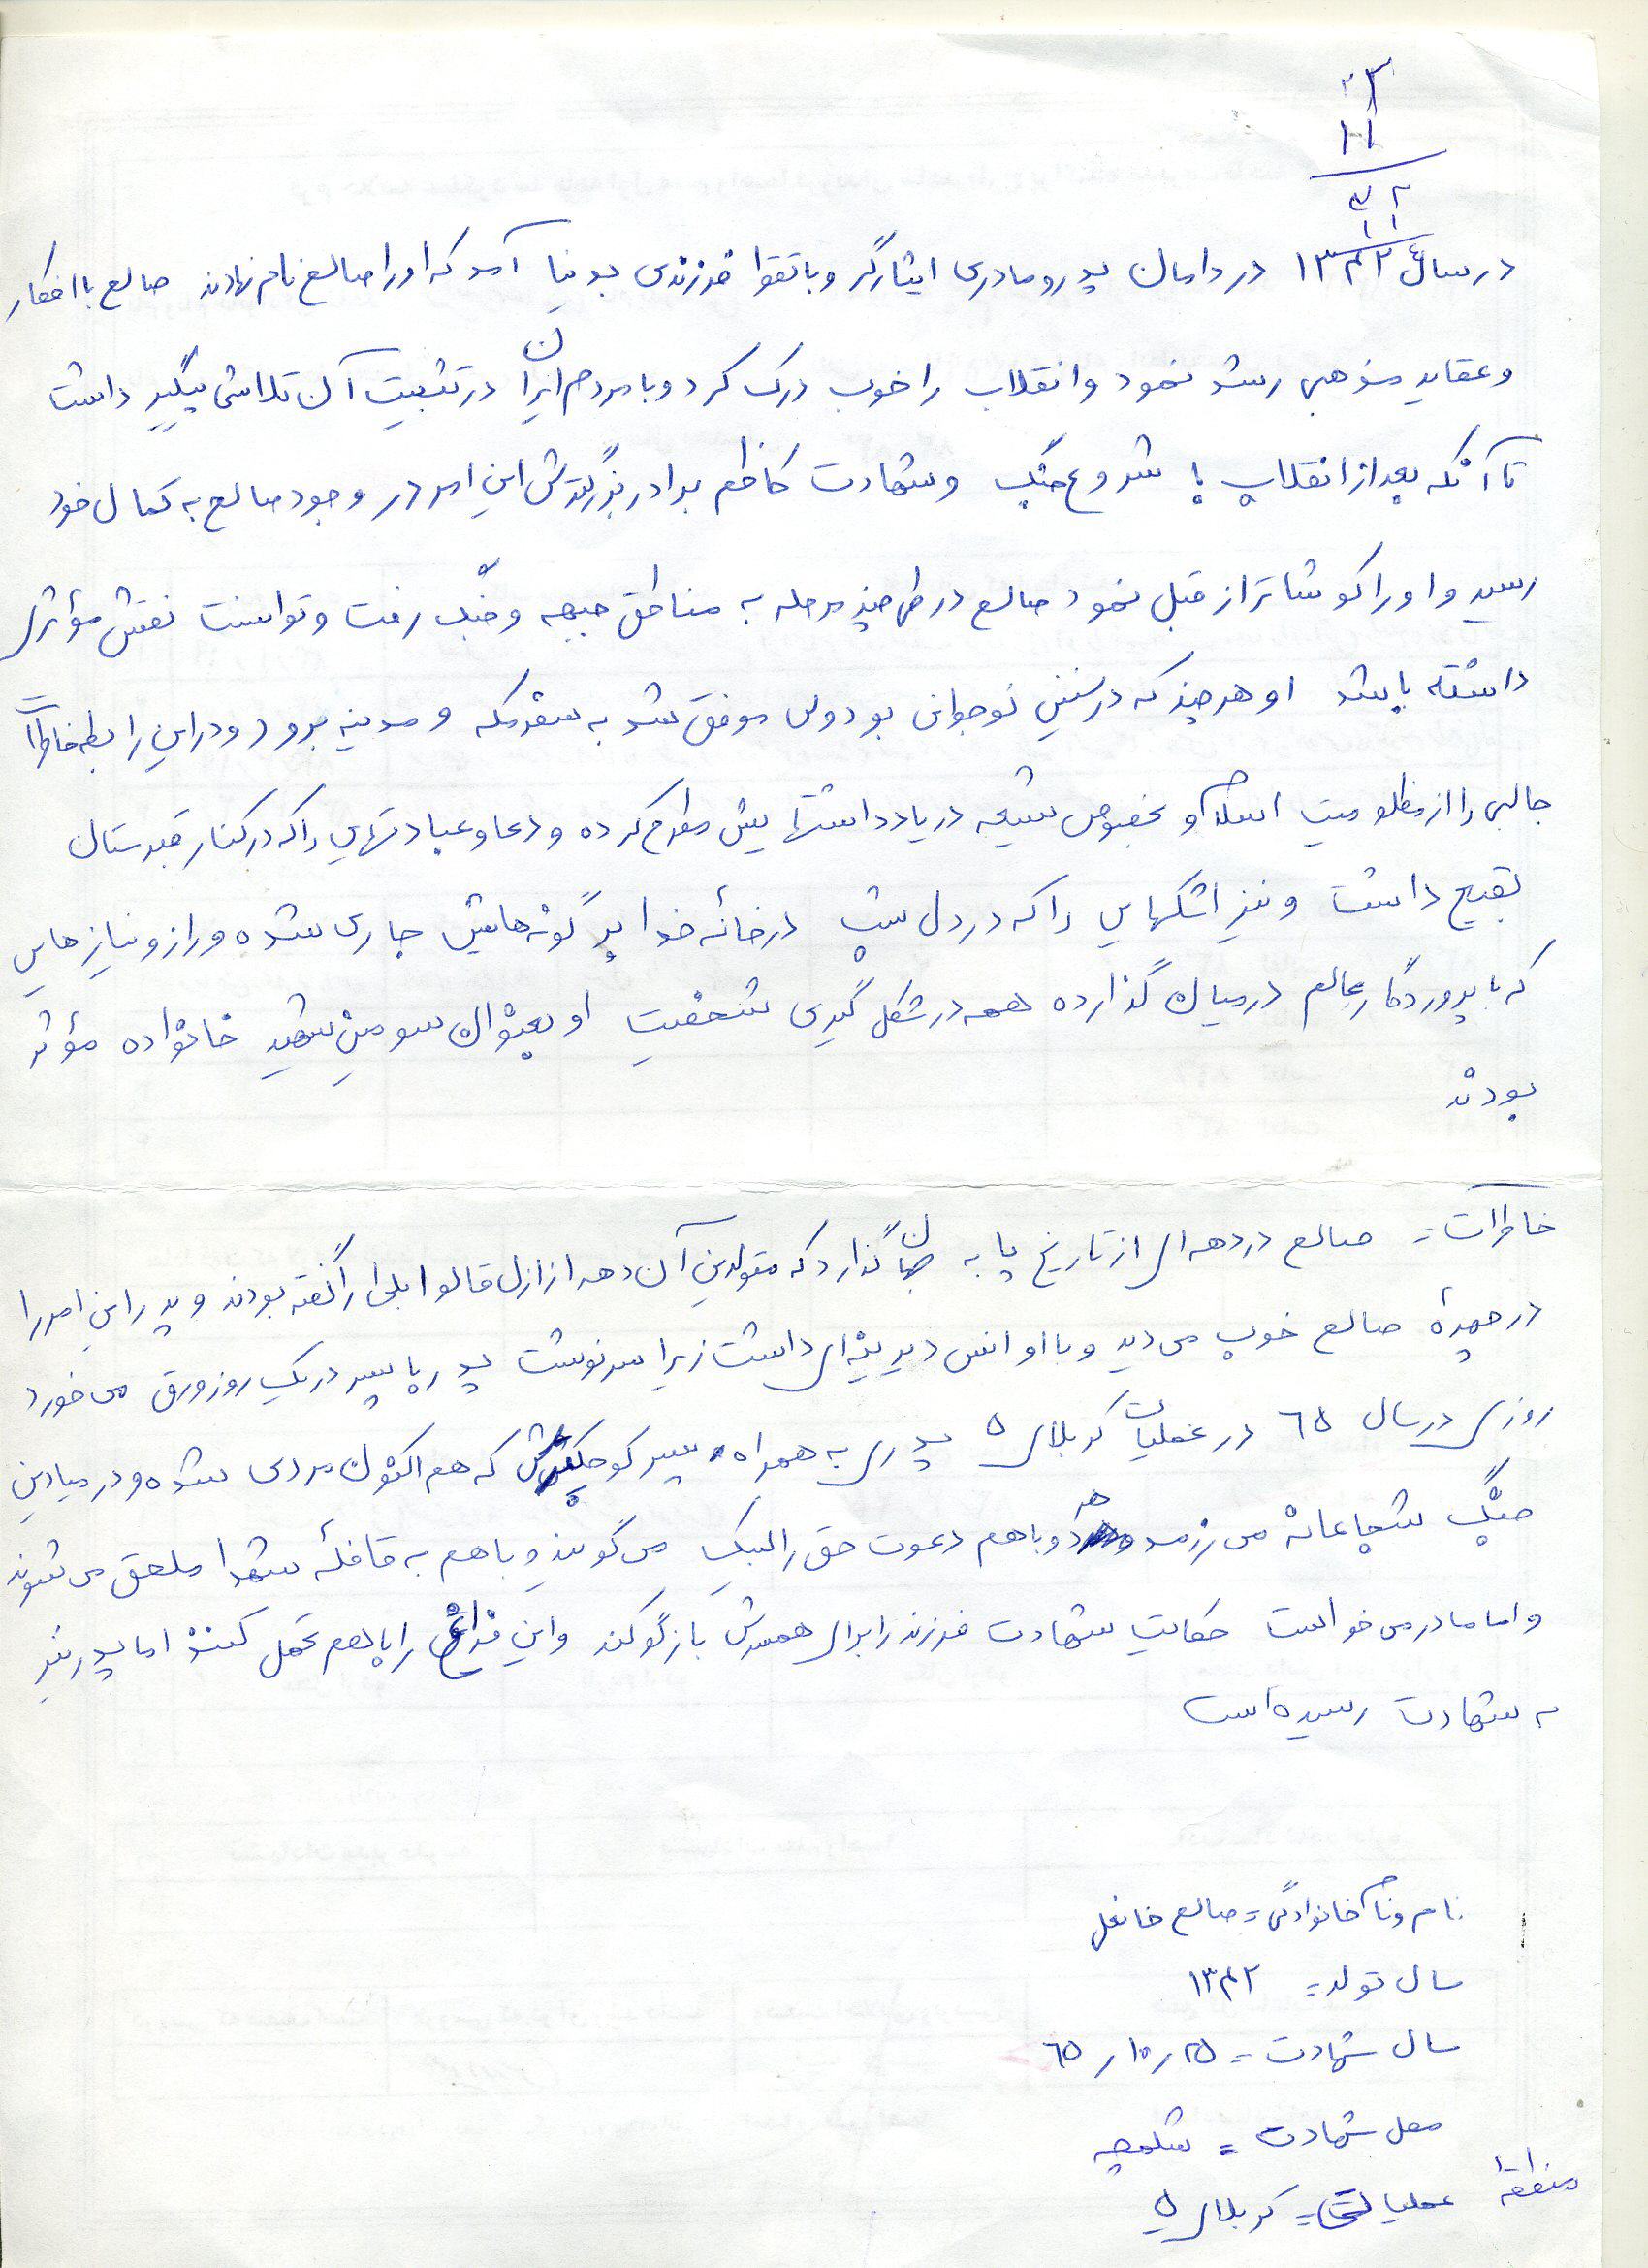 در سال ۱۳۴۲ در دامان پدر و مادری ایثارگر و باتقوا فرزندی بدنیا آمد که او را صالح نام نهادند صالح با افکار
و عقاید مذهبی رشد نمود و انقلاب را خوب درک کرد و با مردم ایران در تثبیت آن تلاشی پیگیر داشت
تا آنکه بعد از انقلاب با شروع جنگ و شهادت کاظم برادر بزرگترش این امر در وجود صالح به کمال خود
رسید و او را کوشاتر از قبل نمود صالح در طی چند مرحله به مناطق جبهه و جنگ رفت و توانست نقش مؤثری
داشته باشد او هر چند که در سنین نوجوانی بود ولی موفق شد به سفر مکه و مدینه برود و در این رابطه خاطرات
جالبی را از مظلومیت اسلام و بخصوص شیعه در یادداشتهایش مطرح کرده و دعا و عبادتهایی را که در کنار قبرستان
بقیع داشت و نیز اشکهایی را که در دل شب در خانهٔ خدا بر گونه‌هایش جاری شده و راز و نیازهایی
که با پروردگار عالم در میان گذارده همه در شکل گیری شخصیت او بعنوان سومین شهید خانواده مؤثر
بودند
خاطرات = صالح در دهه‌ای از تاریخ پا به جهان گذارد که متولدین آن دهه از ازل قالوا بلی را گفته بودند و پدر این امر را
در چهرهٔ صالح خوب می دید و با او انس دیرینه‌ای داشت زیرا سرنوشت پدر با پسر در یک روز ورق می خورد
روزی در سال ٦٥ در عملیات کربلای ۵ پدری به همراه پسر کوچکترش که هم اکنون مردی شده و در میادین
جنگ شجاعانه می رزمد هر دو با هم دعوت حق را لبیک می گویند و با هم به قافلهٔ شهدا ملحق می شوند
و اما مادر می خواست حکایت شهادت فرزند را برای همسرش بازگو کند و این فراغ را با هم تحمل کنند اما پدر نیز
به شهادت رسیده است
نام و نام خانوادگی = صالح خانعلی
سال تولد = ۱۳۴۲
سال شهادت = ٢٥ر١٠ر٦٥
محل شهادت = شلمچه
منطقه عملیاتی = کربلای ۵